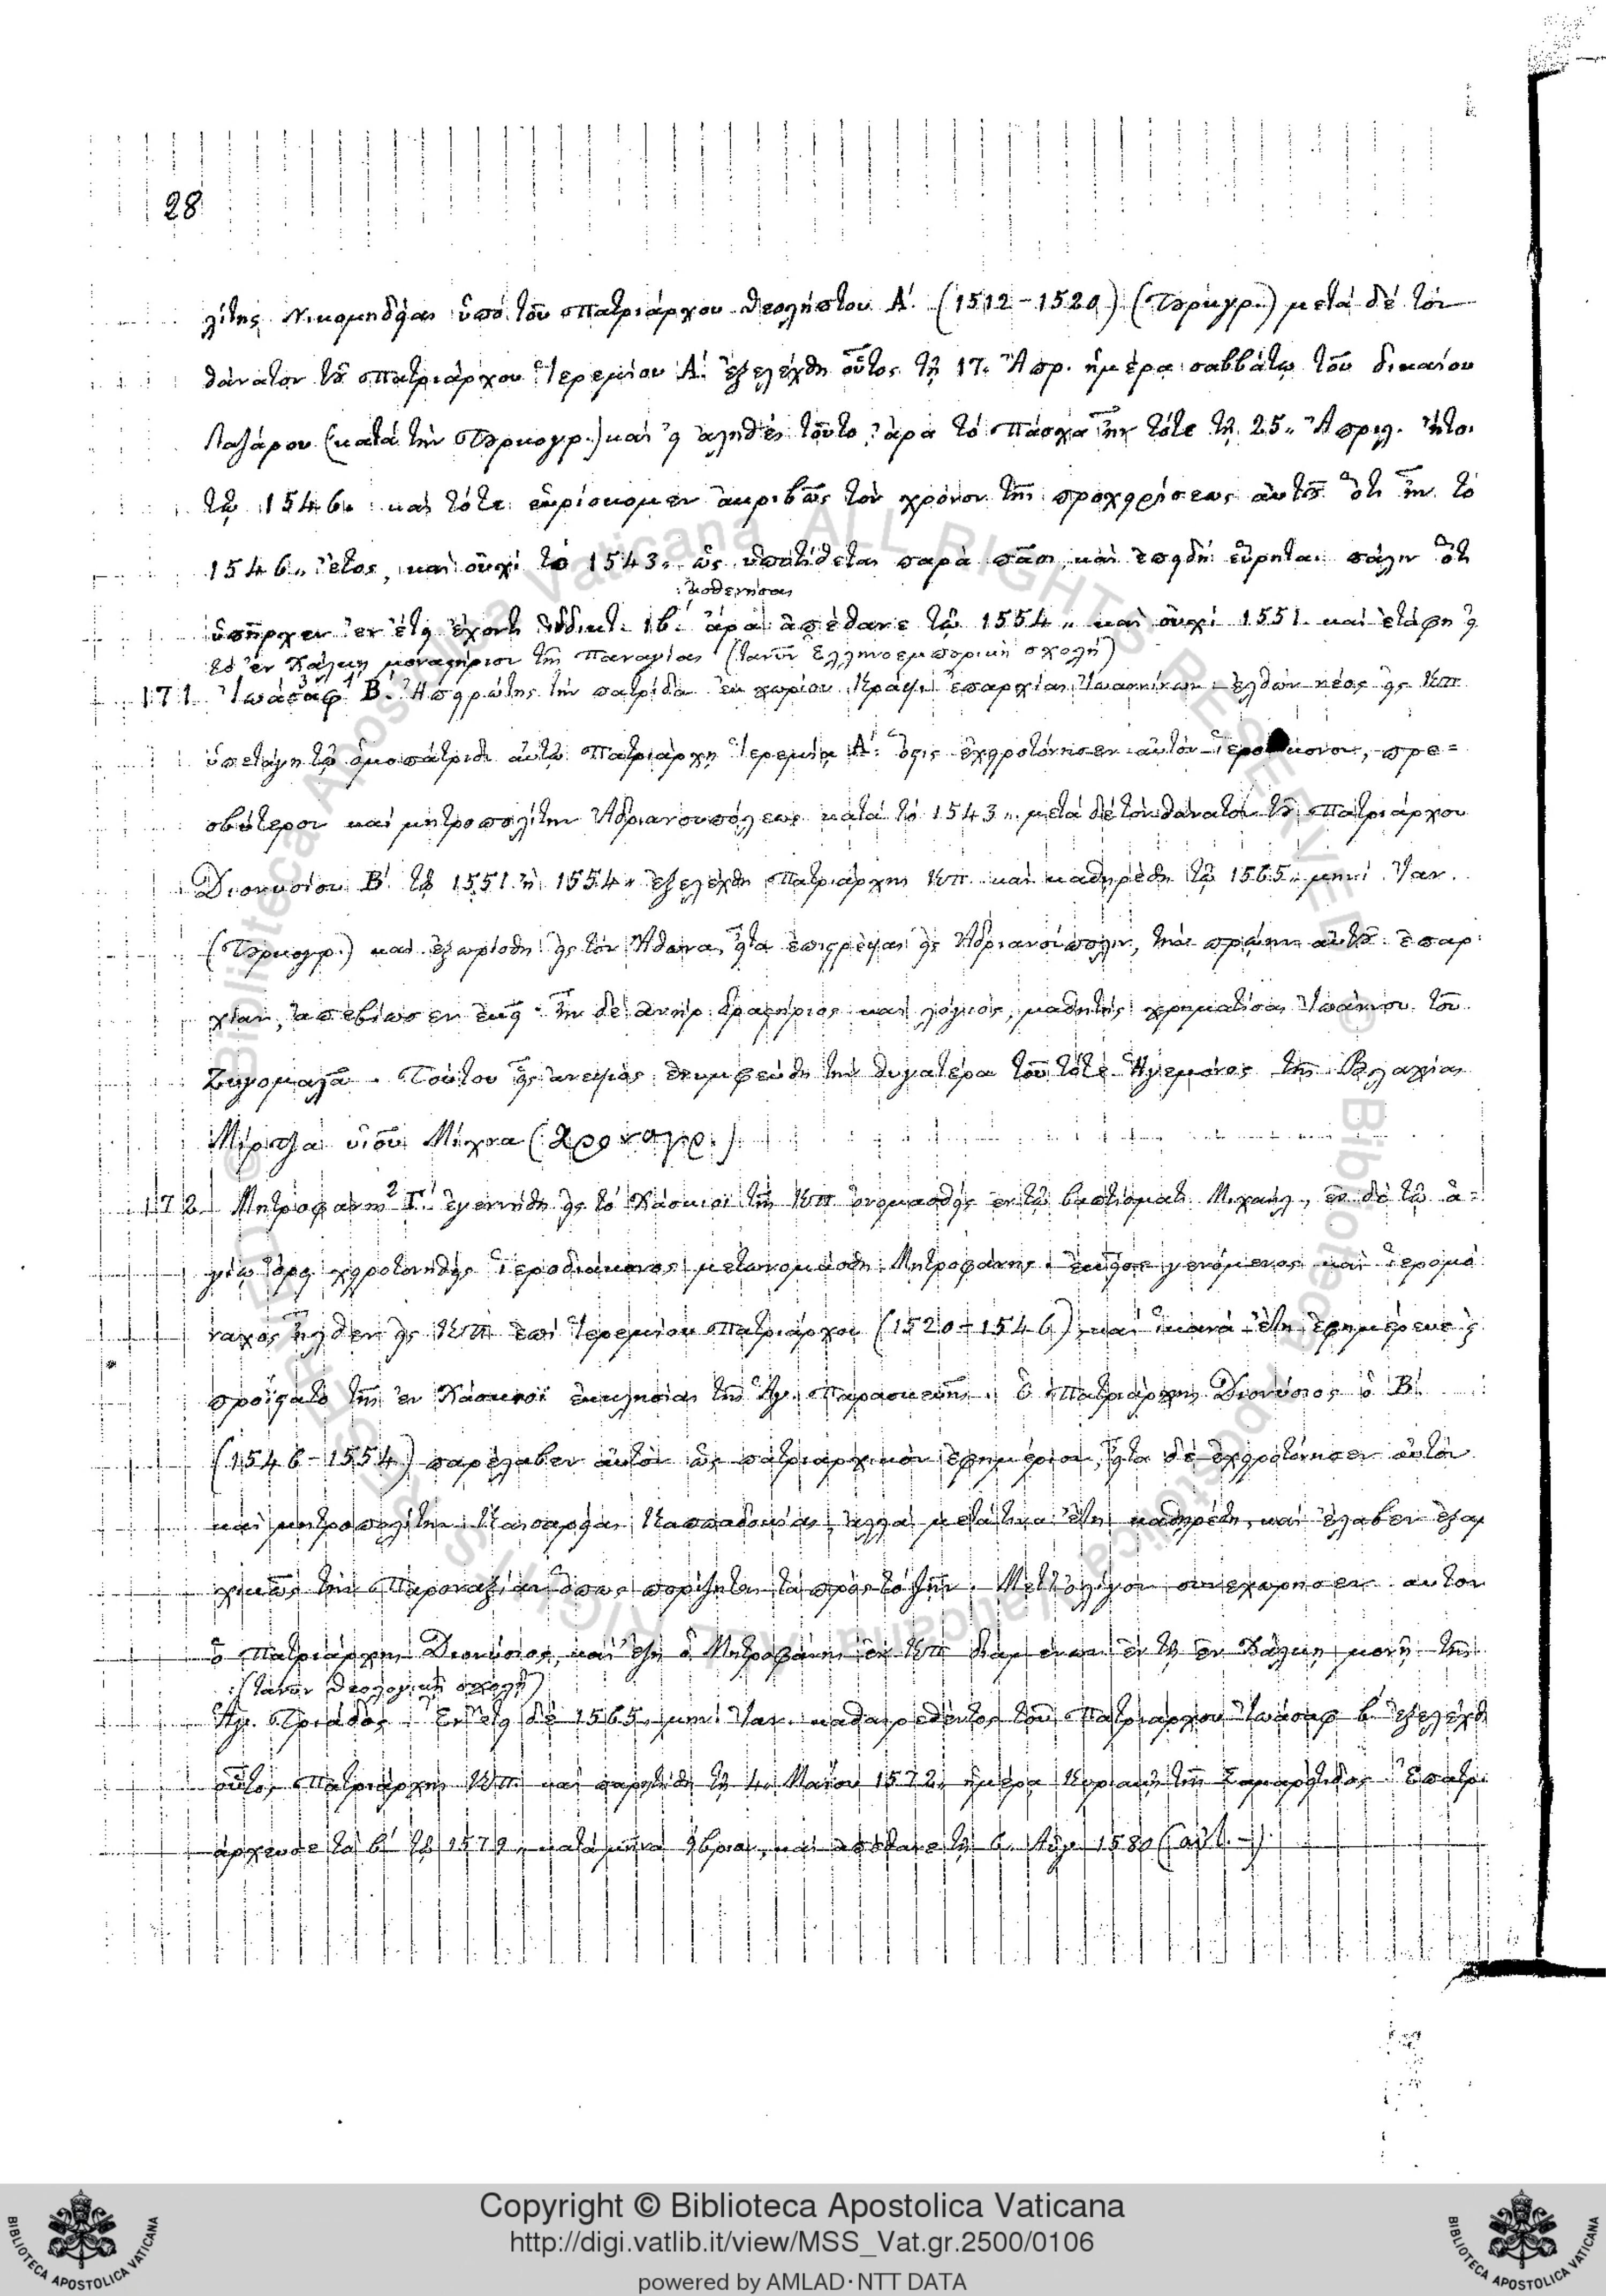 28
λίτης Νικομηδείας ὑπὸ τοῦ Πατριάρχου Θεολήπτου Α΄. (1512-1520) (Τȣρκγρ.) μετὰ δὲ τὸν
θάνατον τȣ͂ Πατριάρχου Ἱερεμίου Α΄. ἐξελέχθη οὗτος τῇ 17. Ἀπρ. ἡμέρα σαββάτῳ τοῦ δικαίου
Λαζάρου (κατὰ τὴν Τȣρκογρ.) καὶ εἰ ἀληθὲς τοῦτο, ἄρα τὸ Πάσχα ἦν τότε τῇ 25. Ἀπριλ. ἤτοι
τῷ 1546. καὶ τότε εὑρίσκομεν ἀκριβῶς τὸν χρόνον τῆς προχειρίσεως αὐτȣ͂ ὅτι ἦν τὸ
1546. ἔτος, καὶ οὐχὶ τὸ 1543. ὡς ὑποτίθεται παρὰ πᾶσι, καὶ ἐπειδὴ εὕρηται πάλιν ὅτι
ἀσθενήσας
ὑπῆρχεν ἐν ἔτει ἔχοντι ἰνδικτ. ιβ΄. ἄρα ἀπέθανε τῷ 1554. καὶ οὐχὶ 1551. καὶ ἐτάφη εἰς
τὸ ἐν Χάλκῃ μοναστήριον τῆς Παναγίας (τανῦν Ἑλληνοεμπορικὴ σχολή)
171. Ἰωάσαφ Β΄. Ἠπειρώτης τὴν πατρίδα ἐκ χωρίου Κράψι ἐπαρχίας Ἰωαννίνων ἐλθὼν νέος εἰς Κπ
ὑπετάγη τῷ ὁμοπάτριδι αὐτῷ Πατριάρχῃ Ἱερεμίᾳ Α΄. ὅστις ἐχειροτόνησεν αὐτὸν Ἱεροδιάκονον, πρε=
σβύτερον καὶ μητροπολίτην Ἀδριανουπόλεως κατὰ τὸ 1543. μετὰ δὲ τὸν θάνατον τȣ͂ Πατριάρχου
Διονυσίου Β΄. τῷ 1551 ἢ 1554. ἐξελέχθη Πατριάρχης Κπ. καὶ καθῃρέθη τῷ 1565. μηνὶ Ἰαν.
(Τȣρκογρ.) καὶ ἐξωρίσθη εἰς τὸν Ἄθωνα, εἶτα ἐπιστρέψας εἰς Ἀδριανούπολιν, τὴν πρώην αὐτȣ͂ ἐπαρ
χίαν, ἀπεβίωσεν ἐκεῖ. ἦν δὲ ἀνὴρ δραστήριος καὶ λόγιος, μαθητὴς χρηματίσας Ἰωάννου τοῦ
Ζυγομαλᾶ. Τούτου εἷς ἀνεψιὸς ἐνυμφεύθη τὴν θυγατέρα τοῦ τότε Ἡγεμόνος τῆς Βλαχίας
Μίρτζα υἱοῦ Μίχνα
172 Μητροφάνης Γ΄. ἐγεννήθη εἰς τὸ Χάσκιοϊ τῆς Κπ ὀνομασθεὶς ἐν τῷ βαπτίσματι Μιχαήλ, ἐν δὲ τῷ ἁ=
γίῳ ὄρει χειροτονηθεὶς Ἱεροδιάκονος μετωνομάσθη Μητροφάνης. ἐκεῖσε γενόμενος καὶ ἱερομό
ναχος ἦλθεν εἰς Κπ ἐπὶ Ἱερεμίου Πατριάρχου (1520-1546) καὶ ἱκανὰ ἔτη ἐφημέρευε ἢ
προΐστατο τῆς ἐν Χάσκιοϊ ἐκκλησίας τῆς Ἁγ. Παρασκευῆς. ὁ Πατριάρχης Διονύσιος ὁ Β΄.
(1546-1554) παρέλαβεν αὐτὸν ὡς πατριαρχικὸν ἐφημέριον, εἶτα δὲ ἐχειροτόνησεν αὐτὸν
καὶ μητροπολίτην Καισαρείας Καππαδοκίας, ἀλλὰ μετά τινα ἔτη καθῃρέθη, καὶ ἔλαβεν ἐξαρ
χικῶς τὴν Παροναξίαν ὅπως πορίζηται τὰ πρὸς τὸ ζῆν. Μετ' ὀλίγον συνεχώρησεν αὐτὸν
ὁ Πατριάρχης Διονύσιος, καὶ ἔζη ὁ Μητροφάνης ἐν Κπ διαμένων ἐν τῇ ἐν Χάλκῃ μονῇ τῆς
(τανῦν Θεολογικὴ σχολή)
Ἁγ. Τριάδος. Ἐν ἔτει δὲ 1565. μηνὶ Ἰαν. καθαιρεθέντος τοῦ Πατριάρχου Ἰωάσαφ β΄. ἐξελέχθη
οὗτος Πατριάρχης Κπ. καὶ παρῃτήθη τῇ 4. Μαΐου 1572. ἡμέρα Κυριακῇ τῆς Σαμαρείτιδος. Ἐπατρι
άρχευσε τὸ β΄ τῷ 1579. κατὰ μῆνα καὶ ἀπέθανε τῇ 6. Αὐγ. 1580 (αὐτ.)
Copyright © Biblioteca Apostolica Vaticana
http://digi.vatlib.it/view/MSS_Vat.gr.2500/0106
powered by AMLAD·NTT DATA
BIBLIOTECA APOSTOLICA VATICANA
BIBLIOTECA APOSTOLICA VATICANA